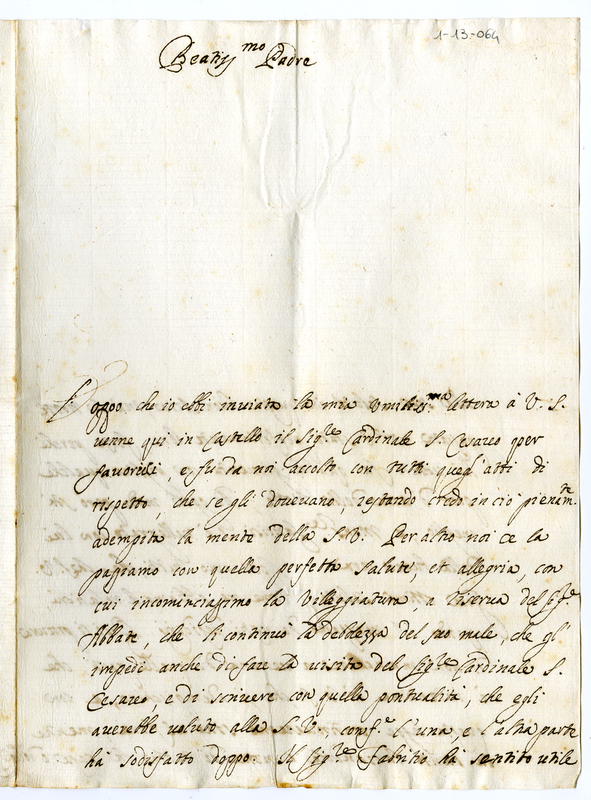 1-13-064
Beatiss.mo Padre
Doppo che io ebbi inviata la mia Umiliss.ma lettera à V. S.
venne qui in Castello il Sig.re Cardinale S. Cesareo per
favorirci, e fu da noi accolto con tutti quegl'atti di
rispetto, che se gli dovevano, restando credo in ciò pienam.te
adempita la mente della S.V. Per altro noi ce la
passiamo con quella perfetta salute, et allegria, con
cui incominciassimo la Villeggiatura, a riserva del Sig.re
Abbate, che li continuò la debolezza del suo male, che gl'
impedì anche di fare la visita del Sig.re Cardinale S.
Cesareo, e di scrivere con quella pontualità, che egli
averebbe voluto alla S.V. conf.e l'una, e l'altra parte
hà sodisfatto doppo. Il Sig.re Fabritio hà sentito utile